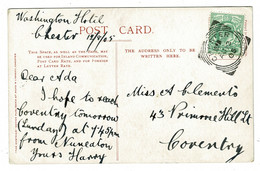 Washington Hotel
Chester 12/8/05
POST CARD.
THIS SPACE, AS WELL AS THE BACK, MAY
BE USED FOR INLAND COMMUNICATION,
POST CARD RATE, AND FOR FOREIGN
AT LETTER RATE.
THE ADDRESS ONLY TO BE
WRITTEN HERE.
Dear Ada
I hope to reach
Coventry tomorrow
(Sunday) at 7.45pm
from Nuneaton
Yours Harry
Miss A Clements
43 Primrose Hill St
Coventry